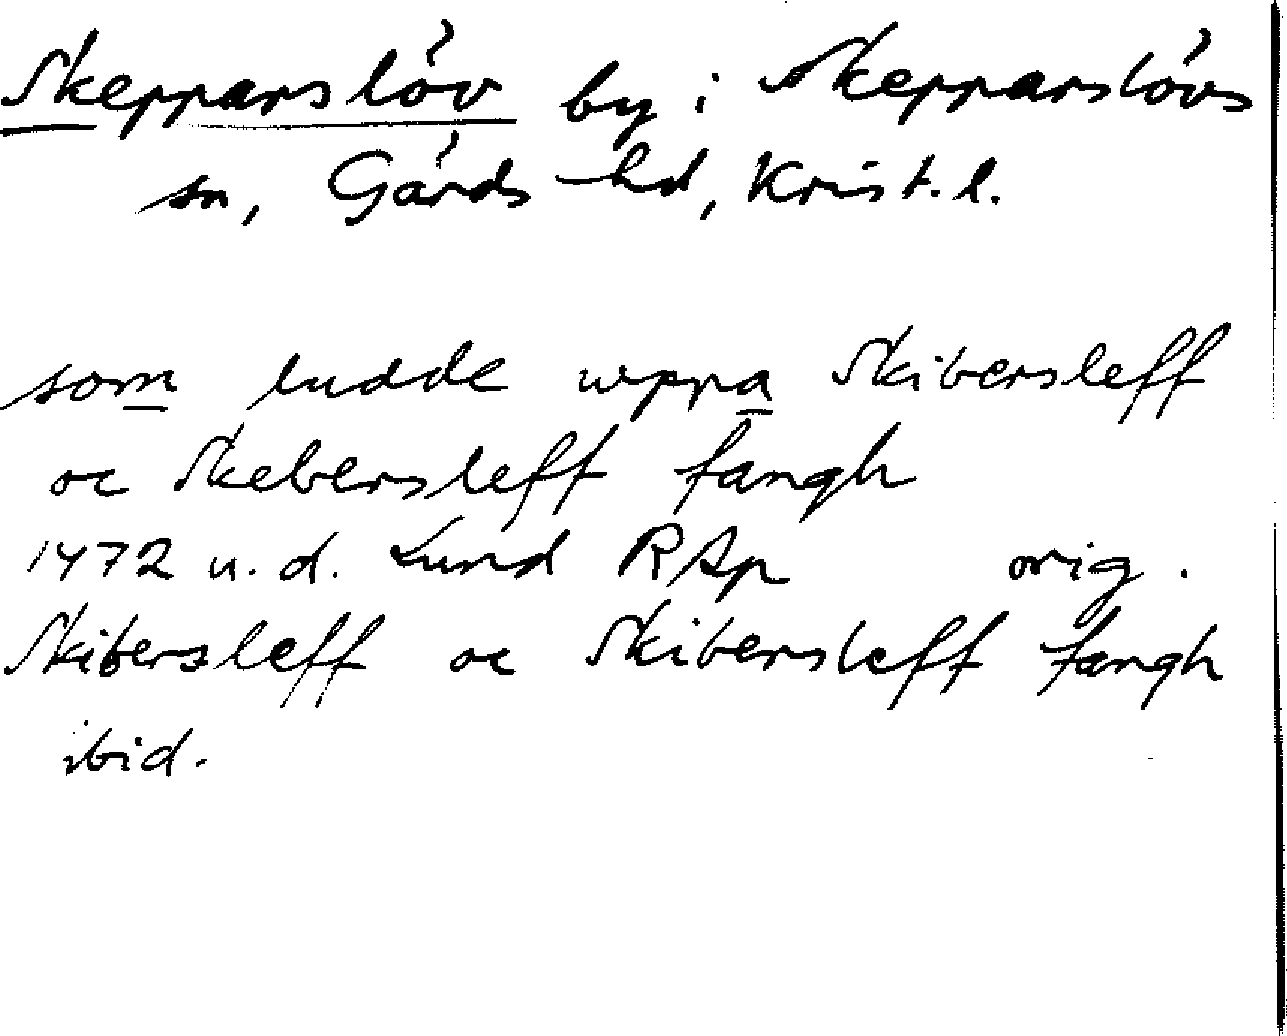 Skepparslöv by i Skepparslövs
sn, Gärds hd, Krist. l.
som ludde uppa Skibersleff
oc Skebersleff fangh
1472 u. d. Lund RAp orig.
Skibersleff oc Skibersleff fangh
ibid.